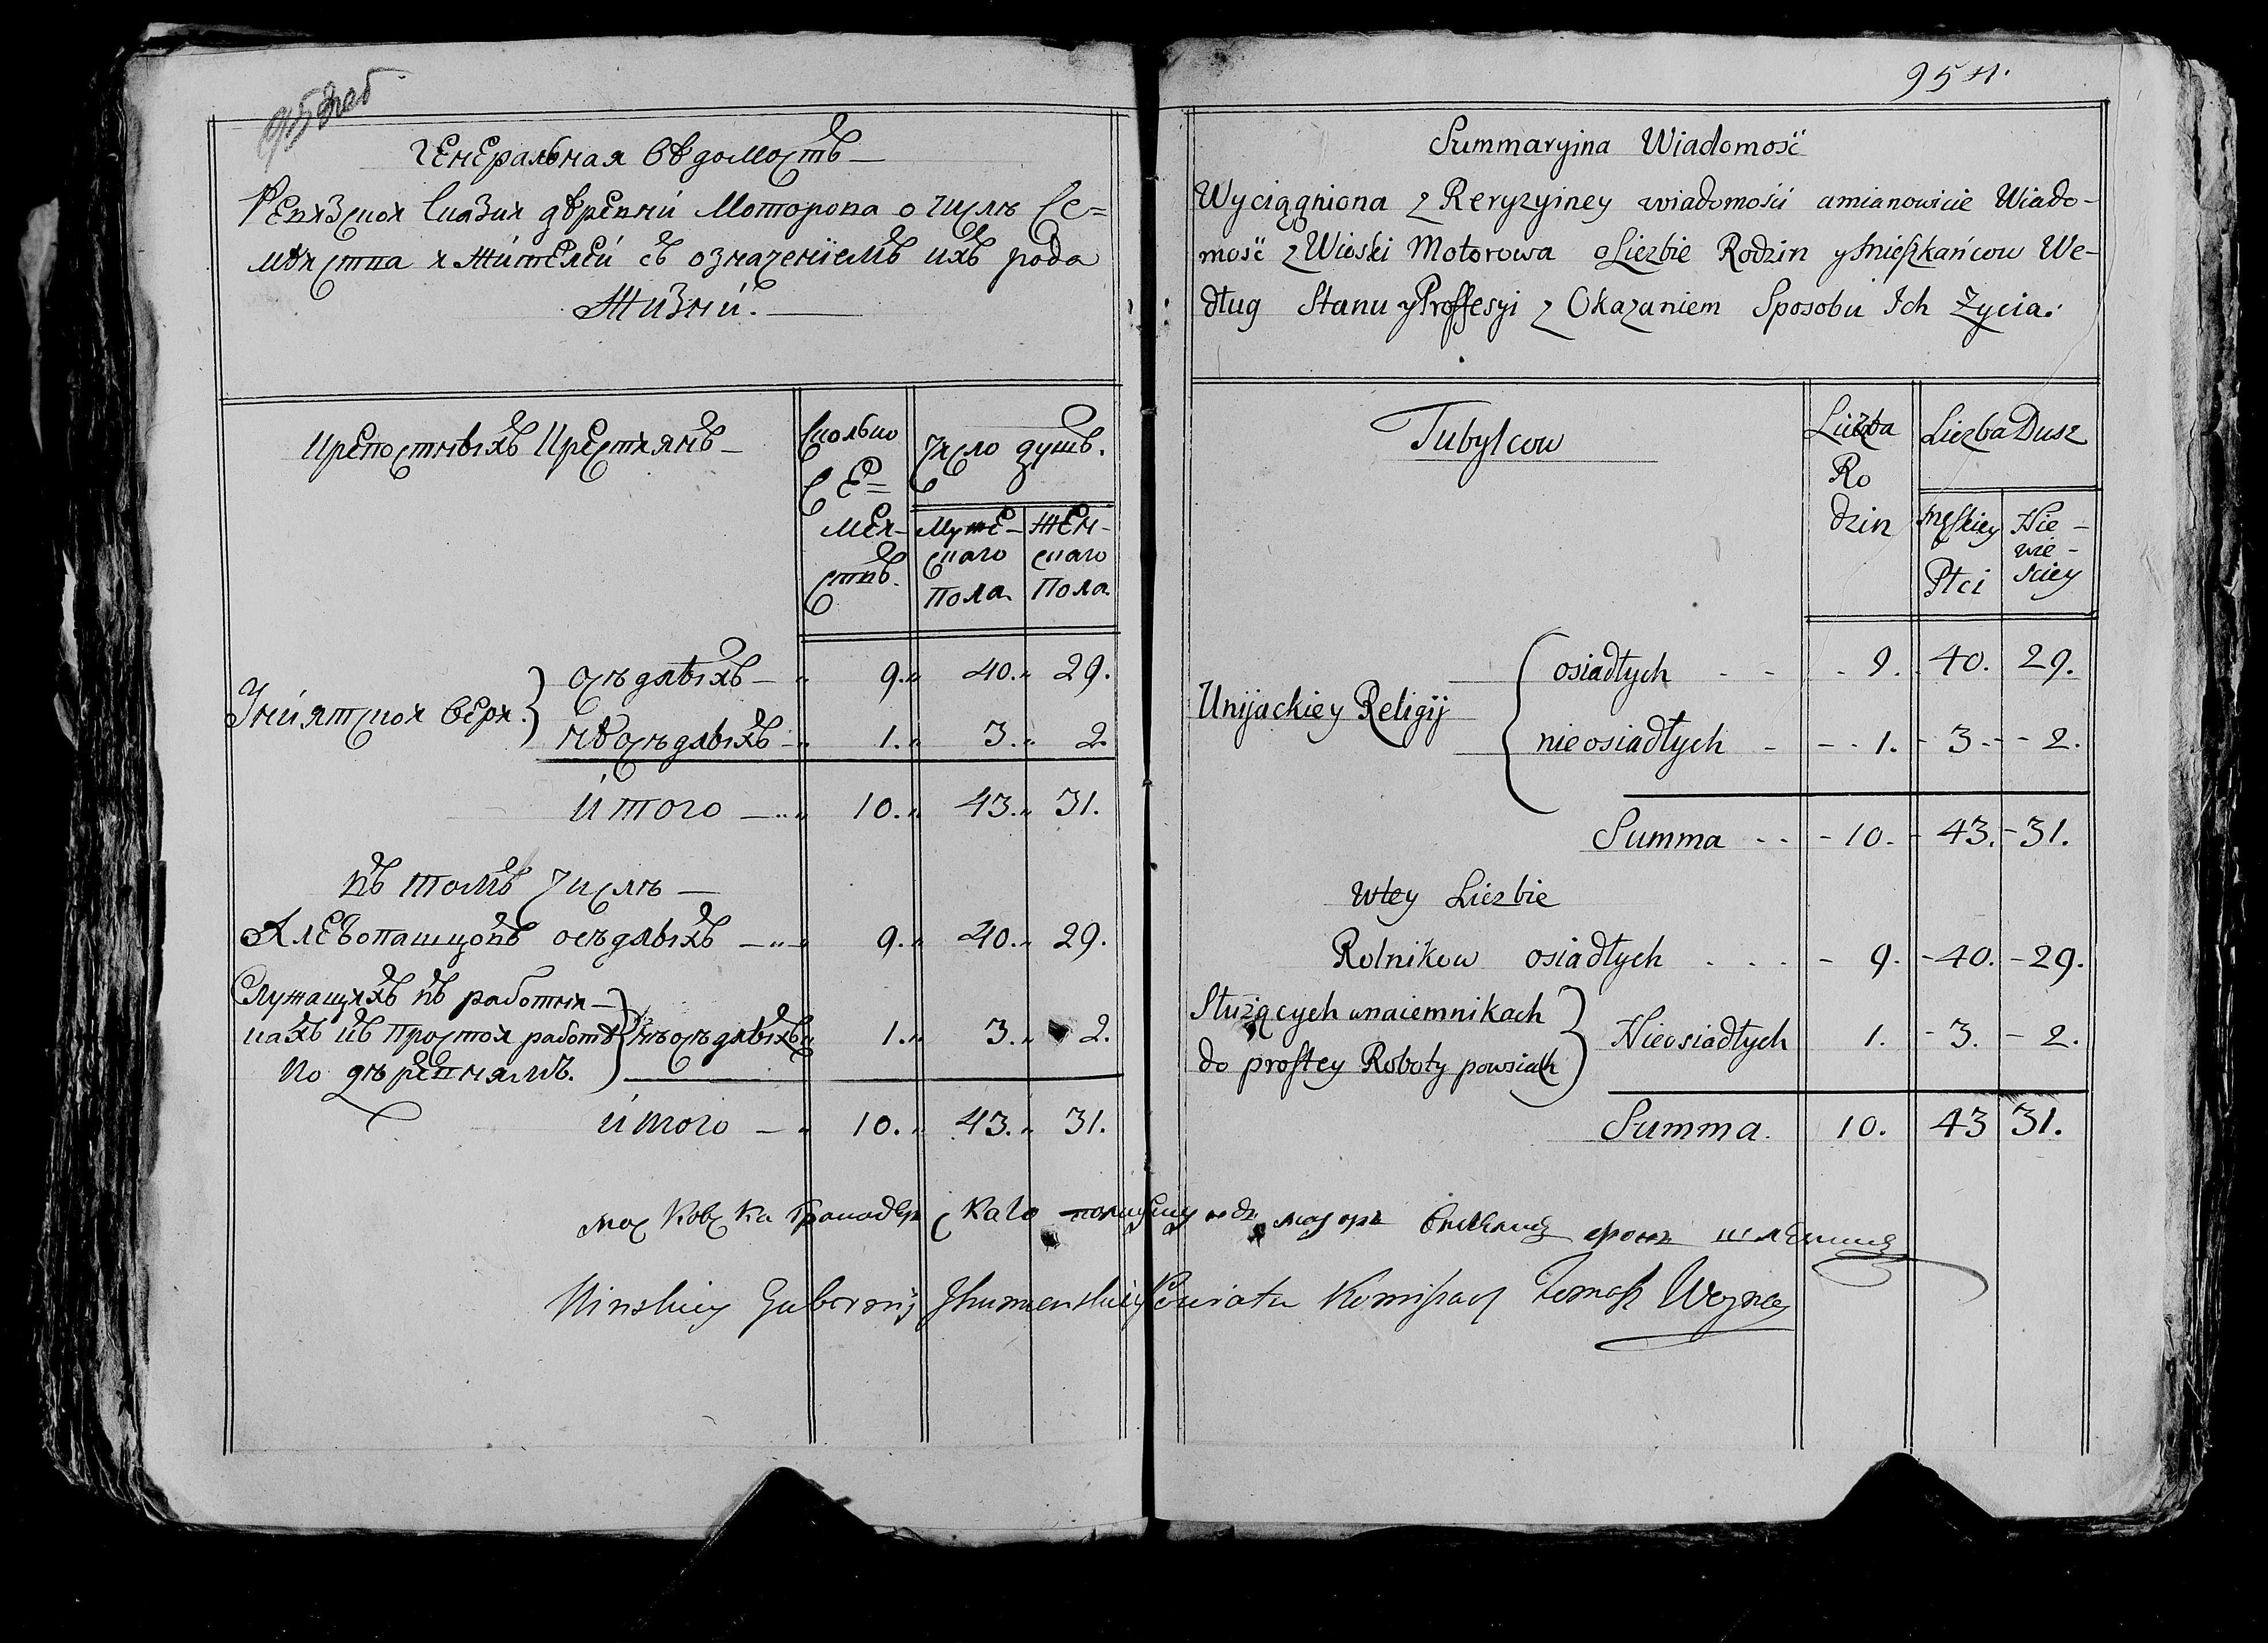 954.
Генеральная ведомостъ
Ревизкоя Сказкя деревни Моторова о числъ Се=
меиства и жителеи съ означениемъ ихъ рода
Жизни.
Крепостныхъ Крестиянъ
Сколько
се=
меи-
ствъ.
число душъ.
Муже-
скаго
Пола
Жен-
скаго
Пола
Униятскоя веры.
осъдлыхъ 9. 40. 29.
неосъдлыхъ 1. 3. 2.
итого 10. 43. 31.
въ томъ числъ
Хлебопашцовъ осъдлыхъ 9. 40. 29.
Служащихъ въ работни-
кахъ въ простоя работе
по деревнямъ.
нъосъдлыхъ 1. 3. 2.
итого 10. 43. 31.
Summaryina Wiadomość
Wyciągniona z Rewyzyiney wiadomości amianowicie Wiado-
mość z Wioski Motorowa o Liczbie Rodzin y Mieszkańcow We-
dług Stanu y Proffesyi z Okazaniem Sposobu Ich Życia.
Tubylcow
Liczba
Ro
dzin
Liczba Dusz
męskiey
Płci
Nie-
wie-
sciey
Unijackiey Religij
osiadłych 9. 40. 29.
nieosiadłych 1. 3. 2.
Summa 10. 43. 31.
wtey Liczbie
Rolnikow osiadłych 9. 40. 29.
Służących wnaiemnikach
do prostey Roboty powsiach
Nieosiadłych 1. 3. 2.
Summa 10. 43 31.
Минskiey Gubernij Jhumenskiey Powiatu Komisarz Tomasz